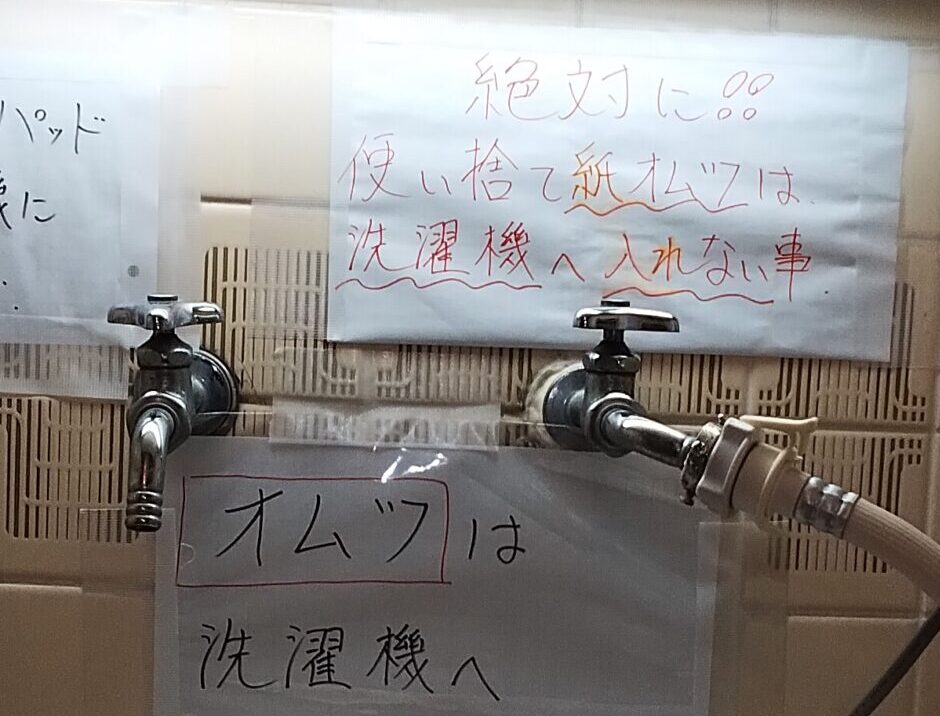 パッド
に
絶対に!!
使い捨て紙オムツは、
洗濯機へ入れない事
オムツは
洗濯機へ